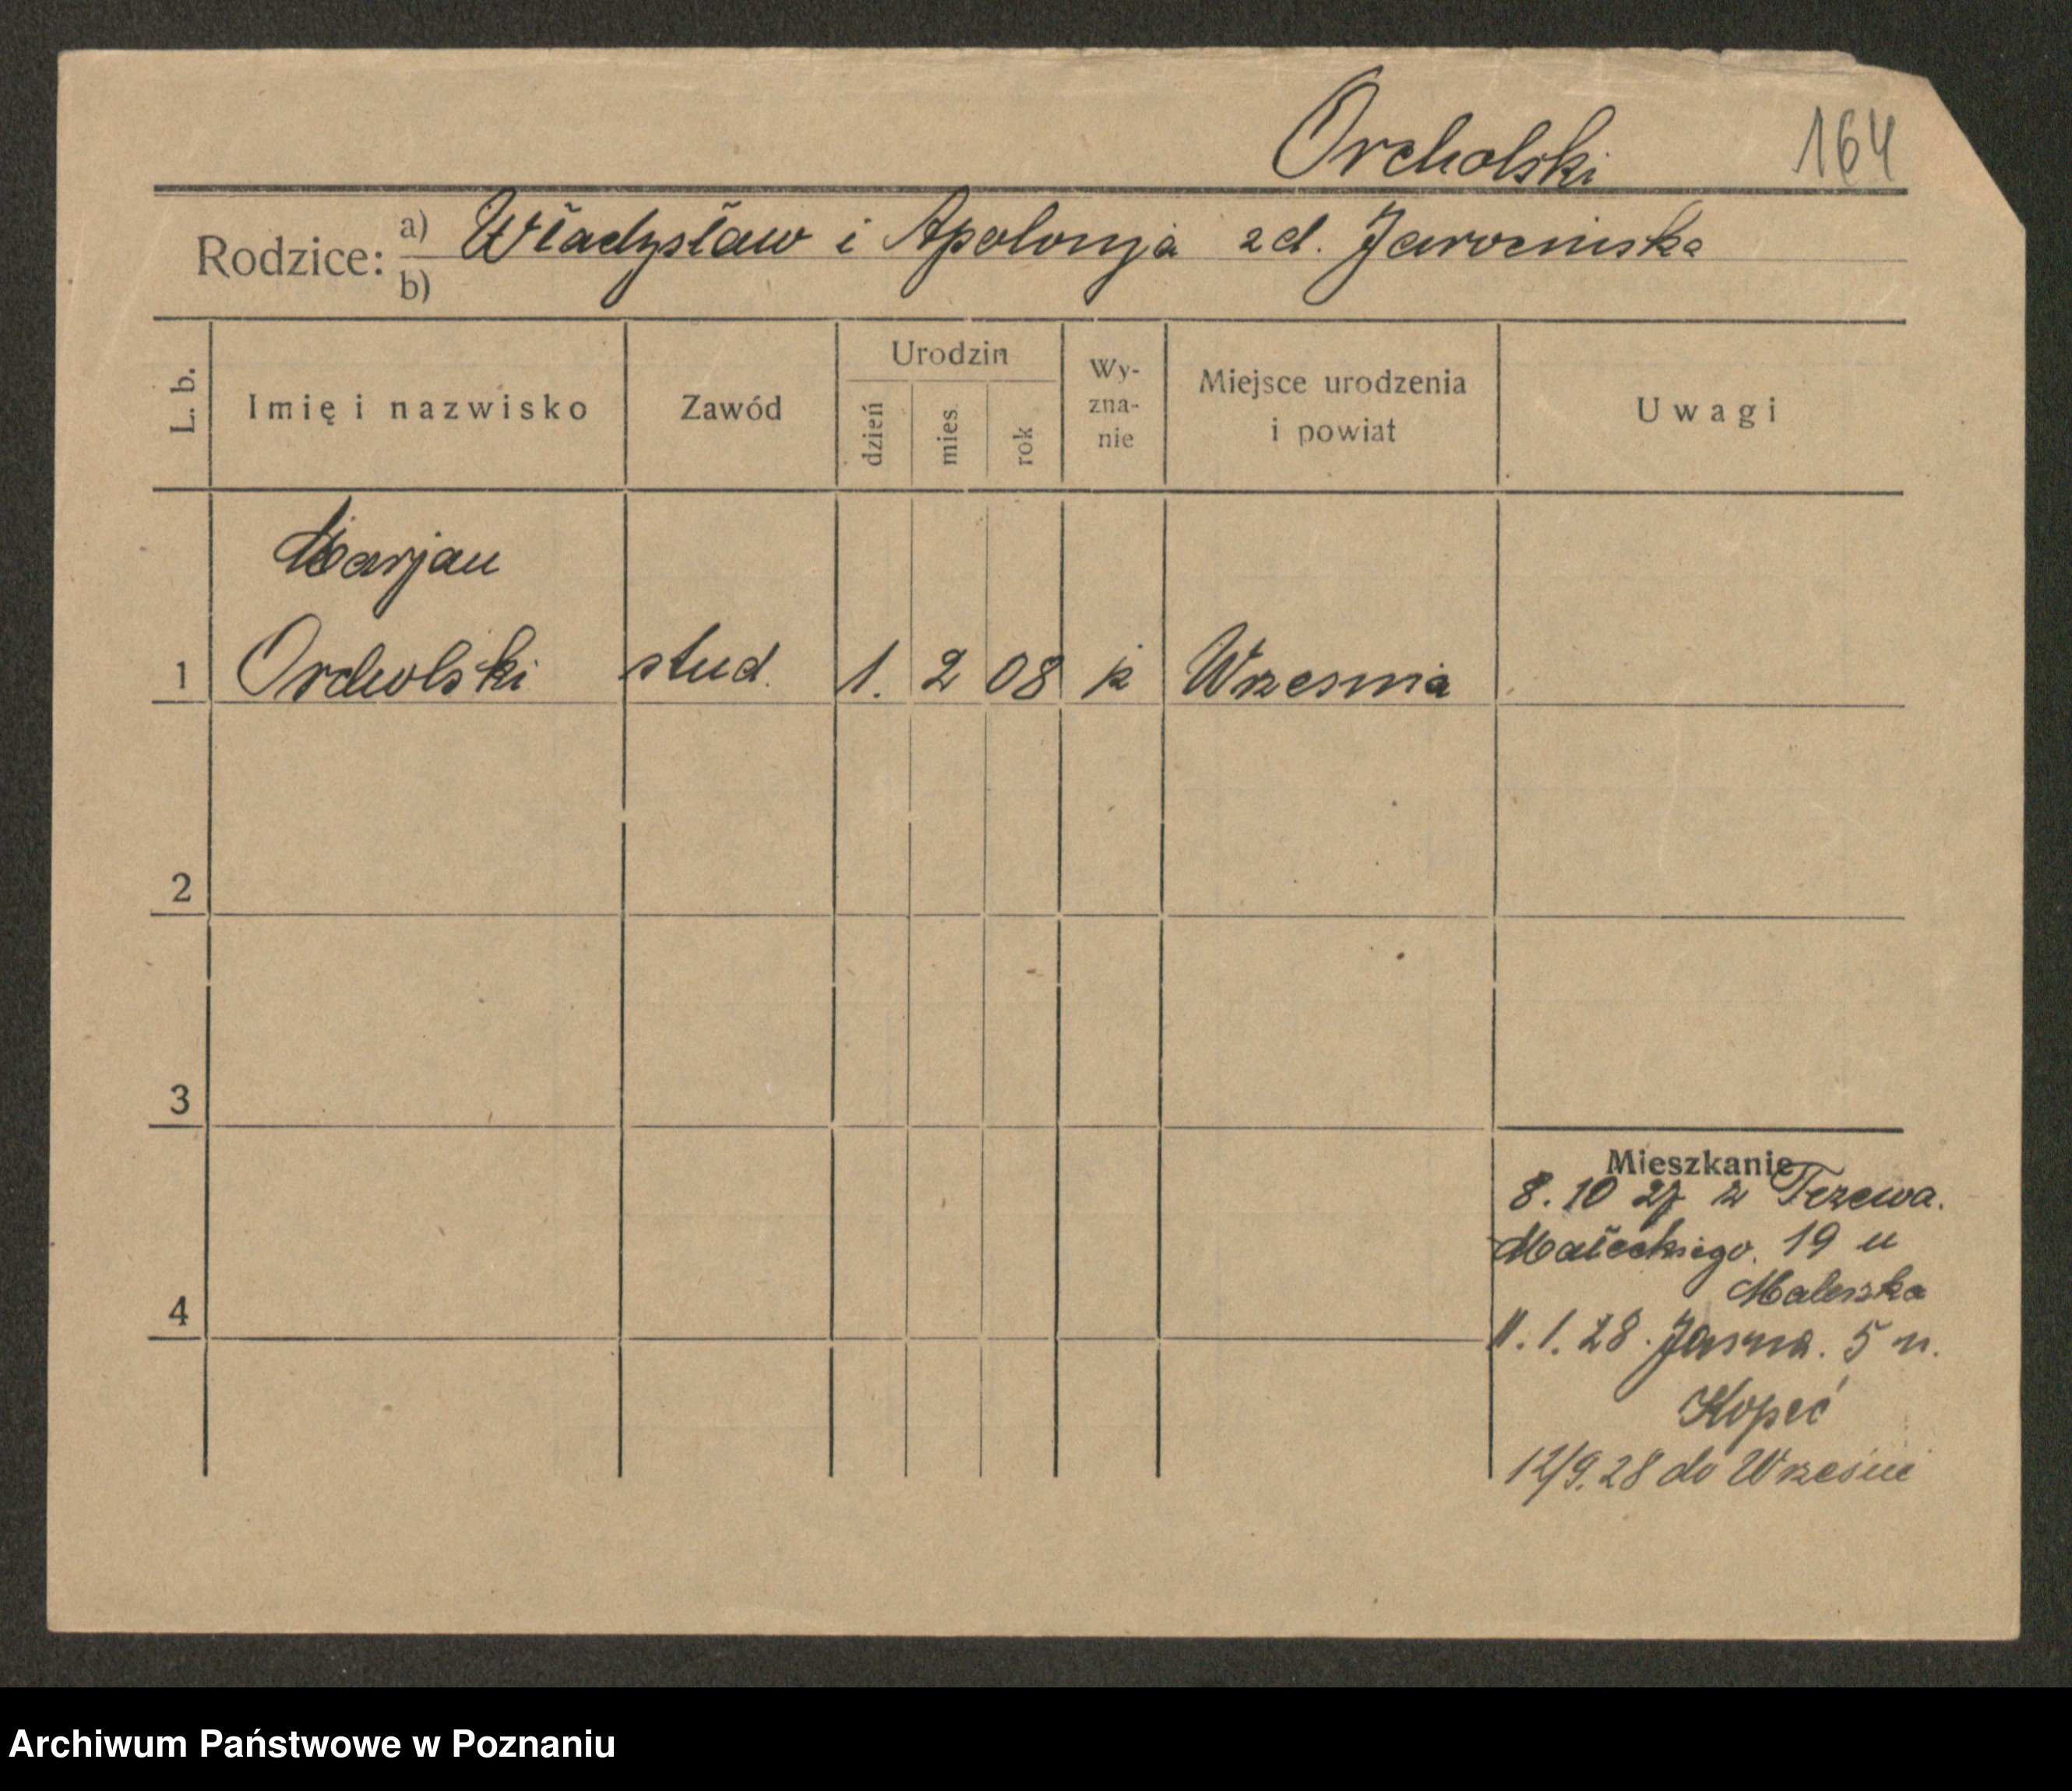 Orcholski 164
Rodzice: a) Władysław i Apolonja zd. Jarocinska
b)
L. b. Imię i nazwisko Zawód Urodzin dzień mies. rok Wy-zna-nie Miejsce urodzenia i powiat Uwagi
Marjan
1 Orcholski stud. 1. 2 08 k Wrzesnia
2
3
Mieszkanie
8. 10 27 z Tczewa.
Małeckiego. 19 u
Maleszka
4
11. 1. 28. Jasna. 5 u.
Kopeć
12/9. 28 do Wrześni
Archiwum Państwowe w Poznaniu